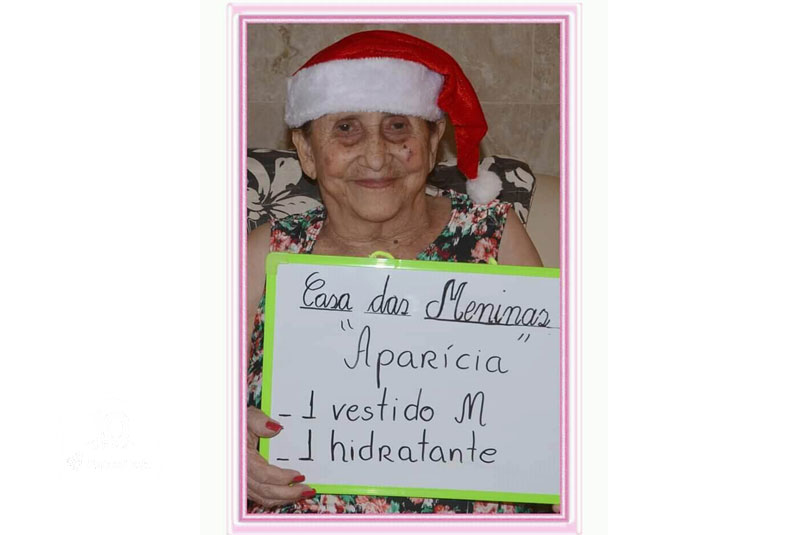 Casa das Meninas
"Aparícia"
- 1 vestido M
- 1 hidratante